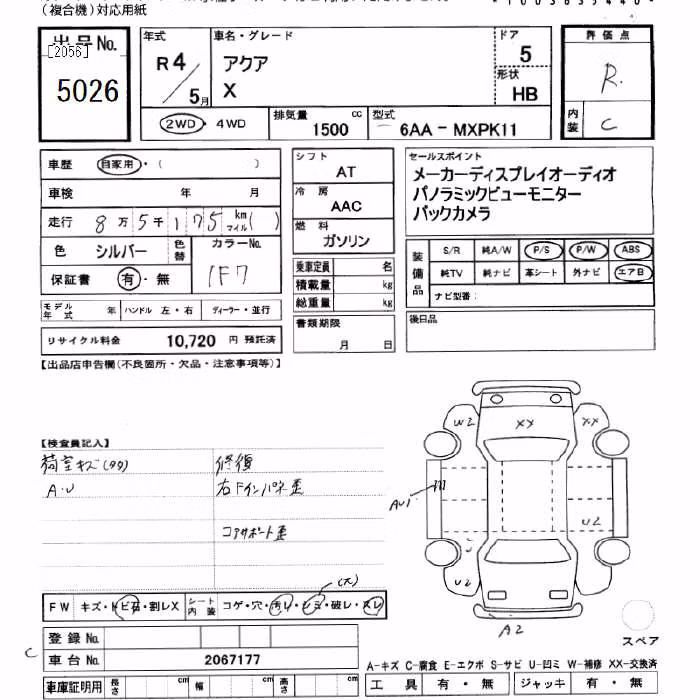 (複合機)対応用紙
出品No.
[2056]
5026
年式
R4/5月
車名・グレード
アクア
X
ドア
5
形状
HB
評価点
R.
内装
C
2WD・4WD
排気量
1500 cc
型式
6AA-MXPK11
車歴 自家用・( )
車検 年 月
走行 8万5千175 km マイル( )
色 シルバー 色替 カラーNo. 1F7
保証書 有・無
モデル年式 年 ハンドル 左・右 ディーラー・並行
リサイクル料金 10,720 円 預託済
シフト
AT
冷房
AAC
燃料
ガソリン
乗車定員 名
積載量 kg
総重量 kg
書類期限
月 日
セールスポイント
メーカーディスプレイオーディオ
パノラミックビューモニター
バックカメラ
装備品
S/R 純A/W P/S P/W ABS
純TV 純ナビ 革シート 外ナビ エアB
ナビ型番:
後日品
【出品店申告欄(不良箇所・欠品・注意事項等)】
【検査員記入】
荷室キズ(タタ) 修復
A・U 右Fインパネ歪
コアサポート歪
W2 XX XX
AU1
U2
U
U2
A2
(大)
FW キズ・トビ石・割レX シート内装 コゲ・穴・汚レ・シミ・破レ・スレ
登録No.
C 車台No. 2067177
車庫証明用 長さ cm 幅 cm 高さ cm
スペア
A-キズ C-腐食 E-エクボ S-サビ U-凹ミ W-補修 XX-交換済
工具 有・無 ジャッキ 有・無